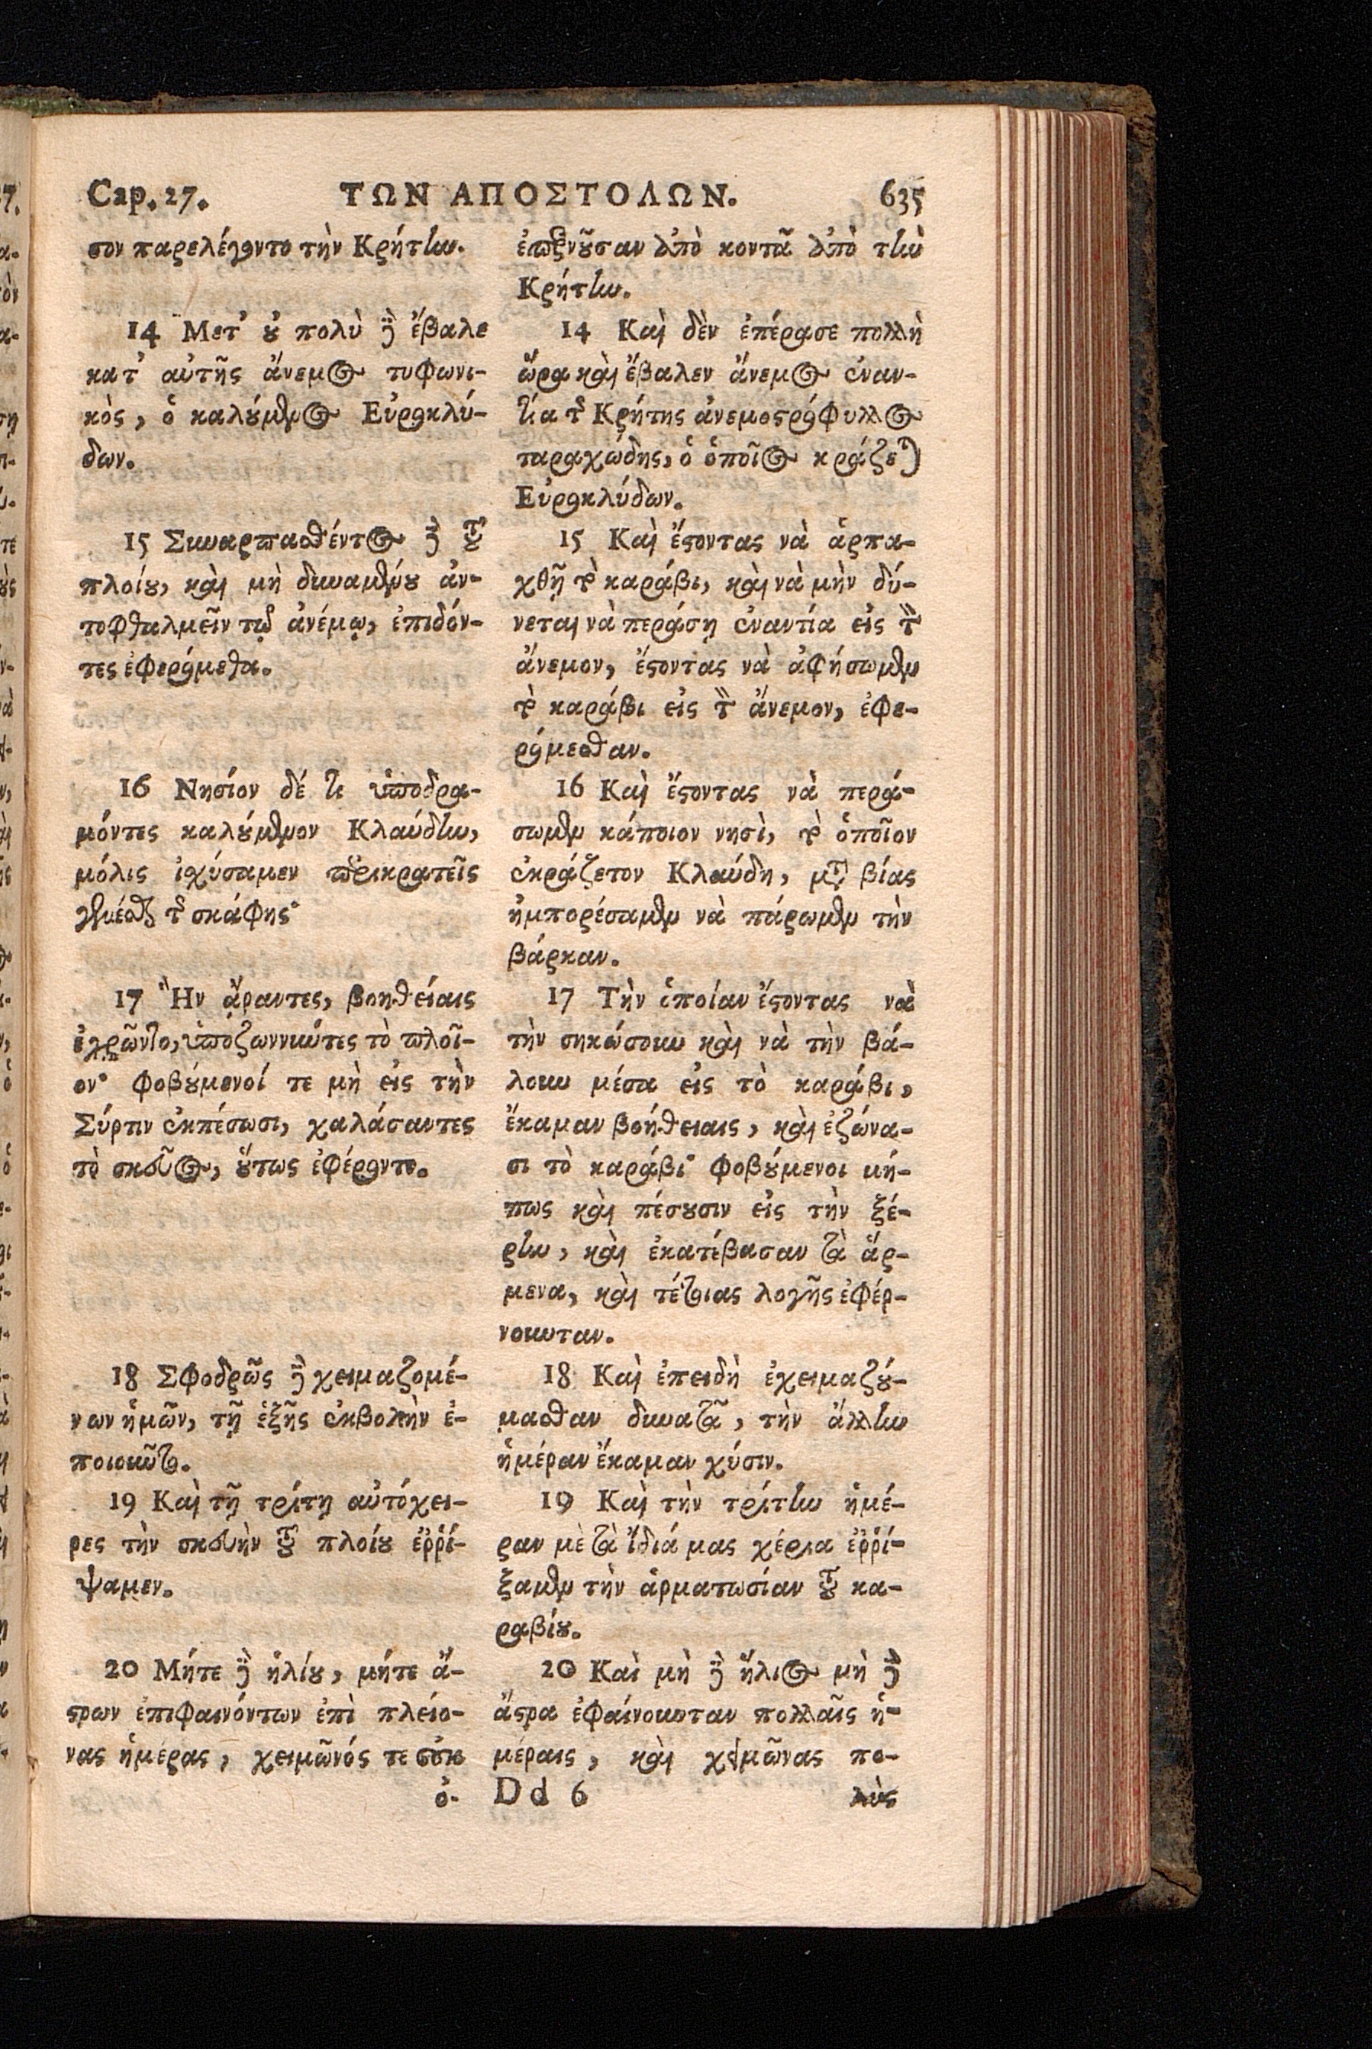 Cap. 27. ΤΩΝ ΑΠΟΣΤΟΛΩΝ. 635
σον παρελέγοντο τὴν Κρήτην.
14 Μετ' ȣ̓ πολὺ δὲ ἔβαλε
κατ' αὐτῆς ἄνεμος τυφωνι-
κὸς, ὁ καλȣ́μενος Εὐροκλύ-
δων.
15 Συναρπασθέντος δὲ τȣ͂
πλοίȣ, καὶ μὴ δυναμένȣ ἀν-
τοφθαλμεῖν τῷ ἀνέμῳ, ἐπιδόν-
τες ἐφερόμεθα.
16 Νησίον δέ τι ὑποδρα-
μόντες καλȣ́μενον Κλαύδην,
μόλις ἰχύσαμεν περικρατεῖς
γενέσθαι τῆς σκάφης·
17 Ἣν ᾄραντες, βοηθείαις
ἐχρῶντο, ὑποζωννιώτες τὸ πλοῖ-
ον· φοβȣ́μενοί τε μὴ εἰς τὴν
Σύρτιν ἐκπέσωσι, χαλάσαντες
τὸ σκεῦος, ȣ̔́τως ἐφέροντο.
18 Σφοδρῶς δὲ χειμαζομέ-
νων ἡμῶν, τῇ ἑξῆς ἐκβολὴν ἐ-
ποιοιῶτο.
19 Καὶ τῇ τρίτῃ αὐτόχει-
ρες τὴν σκευὴν τȣ͂ πλοίȣ ἐῤῥί-
ψαμεν.
20 Μήτε δὲ ἡλίȣ, μήτε ἄ-
στρων ἐπιφαινόντων ἐπὶ πλείο-
νας ἡμέρας, χειμῶνός τε οὐκ
ὀ-
ἐπερνȣ͂σαν ἀπὸ κοντὰ ἀπὸ τὴν
Κρήτην.
14 Καὶ δὲν ἐπέρασε πολλὴ
ὥρα καὶ ἔβαλεν ἄνεμος ἐναν-
τία τῆς Κρήτης ἀνεμοστρόφυλλος
ταραχώδης, ὁ ὁποῖος κράζεται
Εὐροκλύδων.
15 Καὶ ἔστοντας νὰ ἁρπα-
χθῇ τὸ καράβι, καὶ νὰ μὴν δύ-
νεται νὰ περάσῃ ἐναντία εἰς τὸν
ἄνεμον, ἔστοντας νὰ ἀφήσωμεν
τὸ καράβι εἰς τὸν ἄνεμον, ἐφε-
ρόμεσθαν.
16 Καὶ ἔστοντας νὰ περά-
σωμεν κάποιον νησὶ, τὸ ὁποῖον
ἐκράζετον Κλαύδη, μετὰ βίας
ἠμπορέσαμεν νὰ πάρωμεν τὴν
βάρκαν.
17 Τὴν ὁποίαν ἔστοντας νὰ
τὴν σηκώσουν καὶ νὰ τὴν βά-
λουν μέσα εἰς τὸ καράβι,
ἔκαμαν βοήθειαις, καὶ ἐζώνα-
σι τὸ καράβι· φοβȣ́μενοι μή-
πως καὶ πέσȣσιν εἰς τὴν ξέ-
ρην, καὶ ἐκατέβασαν τὰ ἄρ-
μενα, καὶ τέτοιας λογῆς ἐφέρ-
νουνταν.
18 Καὶ ἐπειδὴ ἐχειμαζȣ́-
μασθαν δυνατὰ, τὴν ἄλλην
ἡμέραν ἔκαμαν χύσιν.
19 Καὶ τὴν τρίτην ἡμέ-
ραν μὲ τὰ ἴδιά μας χέρια ἐῤῥί-
ξαμεν τὴν ἁρματωσίαν τȣ͂ κα-
ραβίȣ.
20 Καὶ μὴ δὲ ἥλιος μὴ δὲ
ἄστρα ἐφαίνουνταν πολλαῖς ἡ-
μέραις, καὶ χειμῶνας πο-
Dd 6 λὺς